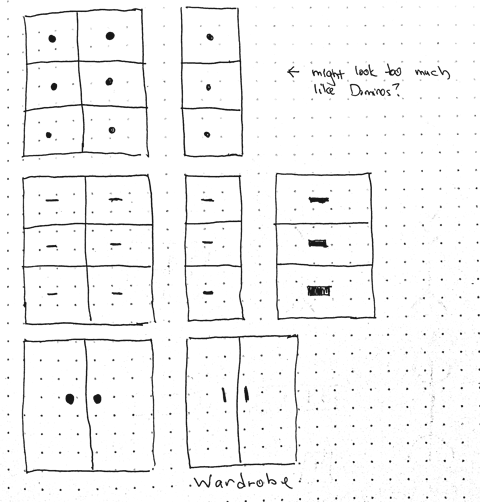 ← might look too much
like Dominos?
Wardrobe